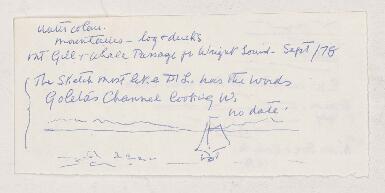 Water colour.
mountains - log & ducks
Mt Gill & Whale Passage fr Wright Sound - Sept/78
The Sketch most like a has the words
Goletas Channel looking W.
no date.